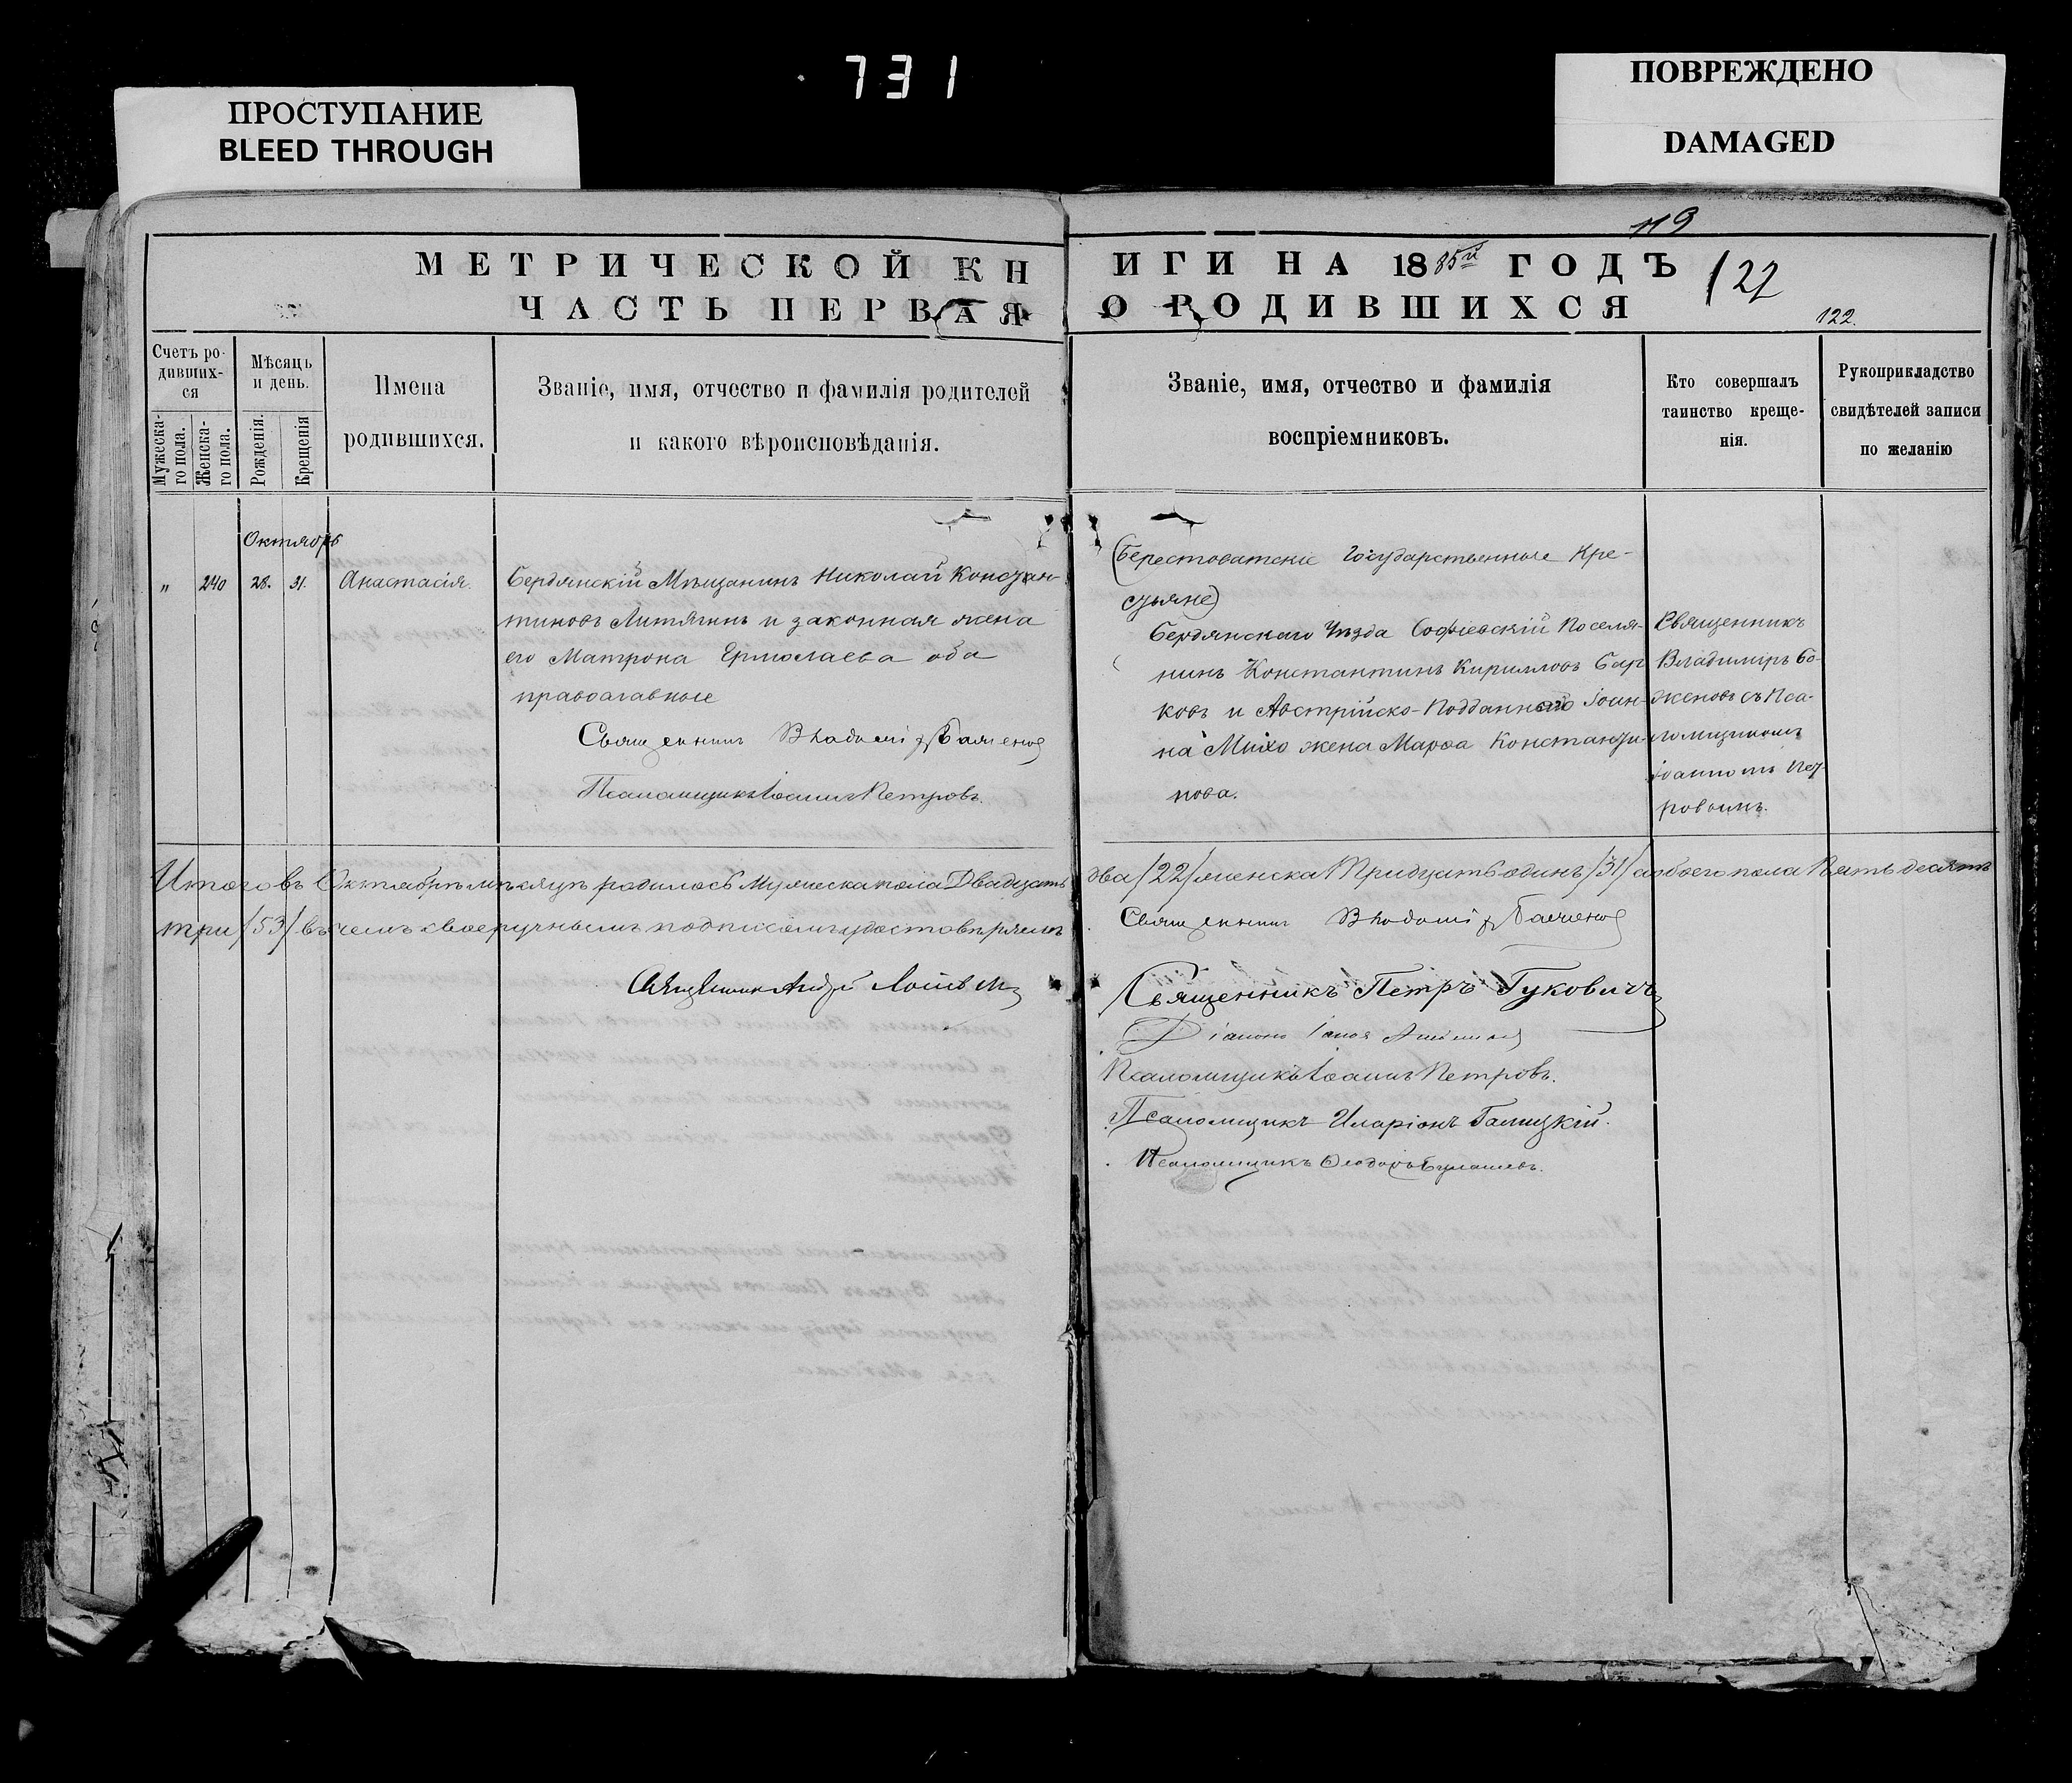 731
ПРОСТУПАНИЕ
BLEED THROUGH
ПОВРЕЖДЕНО
DAMAGED
119
МЕТРИЧЕСКОЙ КНИГИ НА 1885й ГОДЪ
122
ЧАСТЬ ПЕРВАЯ О РОДИВШИХСЯ
122.
Счетъ ро-
дивших-
ся
Мужеска-
го пола.
Женска-
го пола.
Мѣсяцъ
и день.
Рожденія.
Крещенія
Имена
родившихся.
Званіе, имя, отчество и фамилія родителей
и какого вѣроисповѣданія.
Званіе, имя, отчество и фамилія
воспріемниковъ.
Кто совершалъ
таинство креще-
нія.
Рукоприкладство
свидѣтелей записи
по желанію
Октябрь
" 240 28. 31. Анастасія.
Бердянскій Мѣщанинъ Николай Констан-
тиновъ Литягинъ и законная жена
его Матрона Ермолаева оба
православные
Священникъ Владиміръ Баженовъ
Псаломщикъ Іоаннъ Петровъ.
(Берестоватскіе Государственные Кре-
стьяне)
Бердянскаго Уѣзда Софіевскій Поселя-
нинъ Константинъ Кирилловъ
ковъ и Австрійско-Подданнаго Іоан-
на Михо жена Марѳа Константи-
нова.
Священникъ
Владиміръ Ба-
женовъ съ Пса-
ломщикомъ
Іоанномъ Пет-
ровымъ.
Итого въ Октябрѣ мѣсяцѣ родилось Мужеска пола Двадцать два /22/ женска Тридцать одинъ /31/ а обоего пола Пятьдесятъ
три /53/ въ чемъ своеручнымъ подписомъ удостовѣряемъ
Священникъ Владиміръ Баженовъ
Священникъ Андрей
Священникъ Петръ Гуковичъ
Діаконъ
Псаломщикъ Іоаннъ Петровъ.
Псаломщикъ Иларіонъ Галицкій.
Псаломщикъ Ѳеодоръ